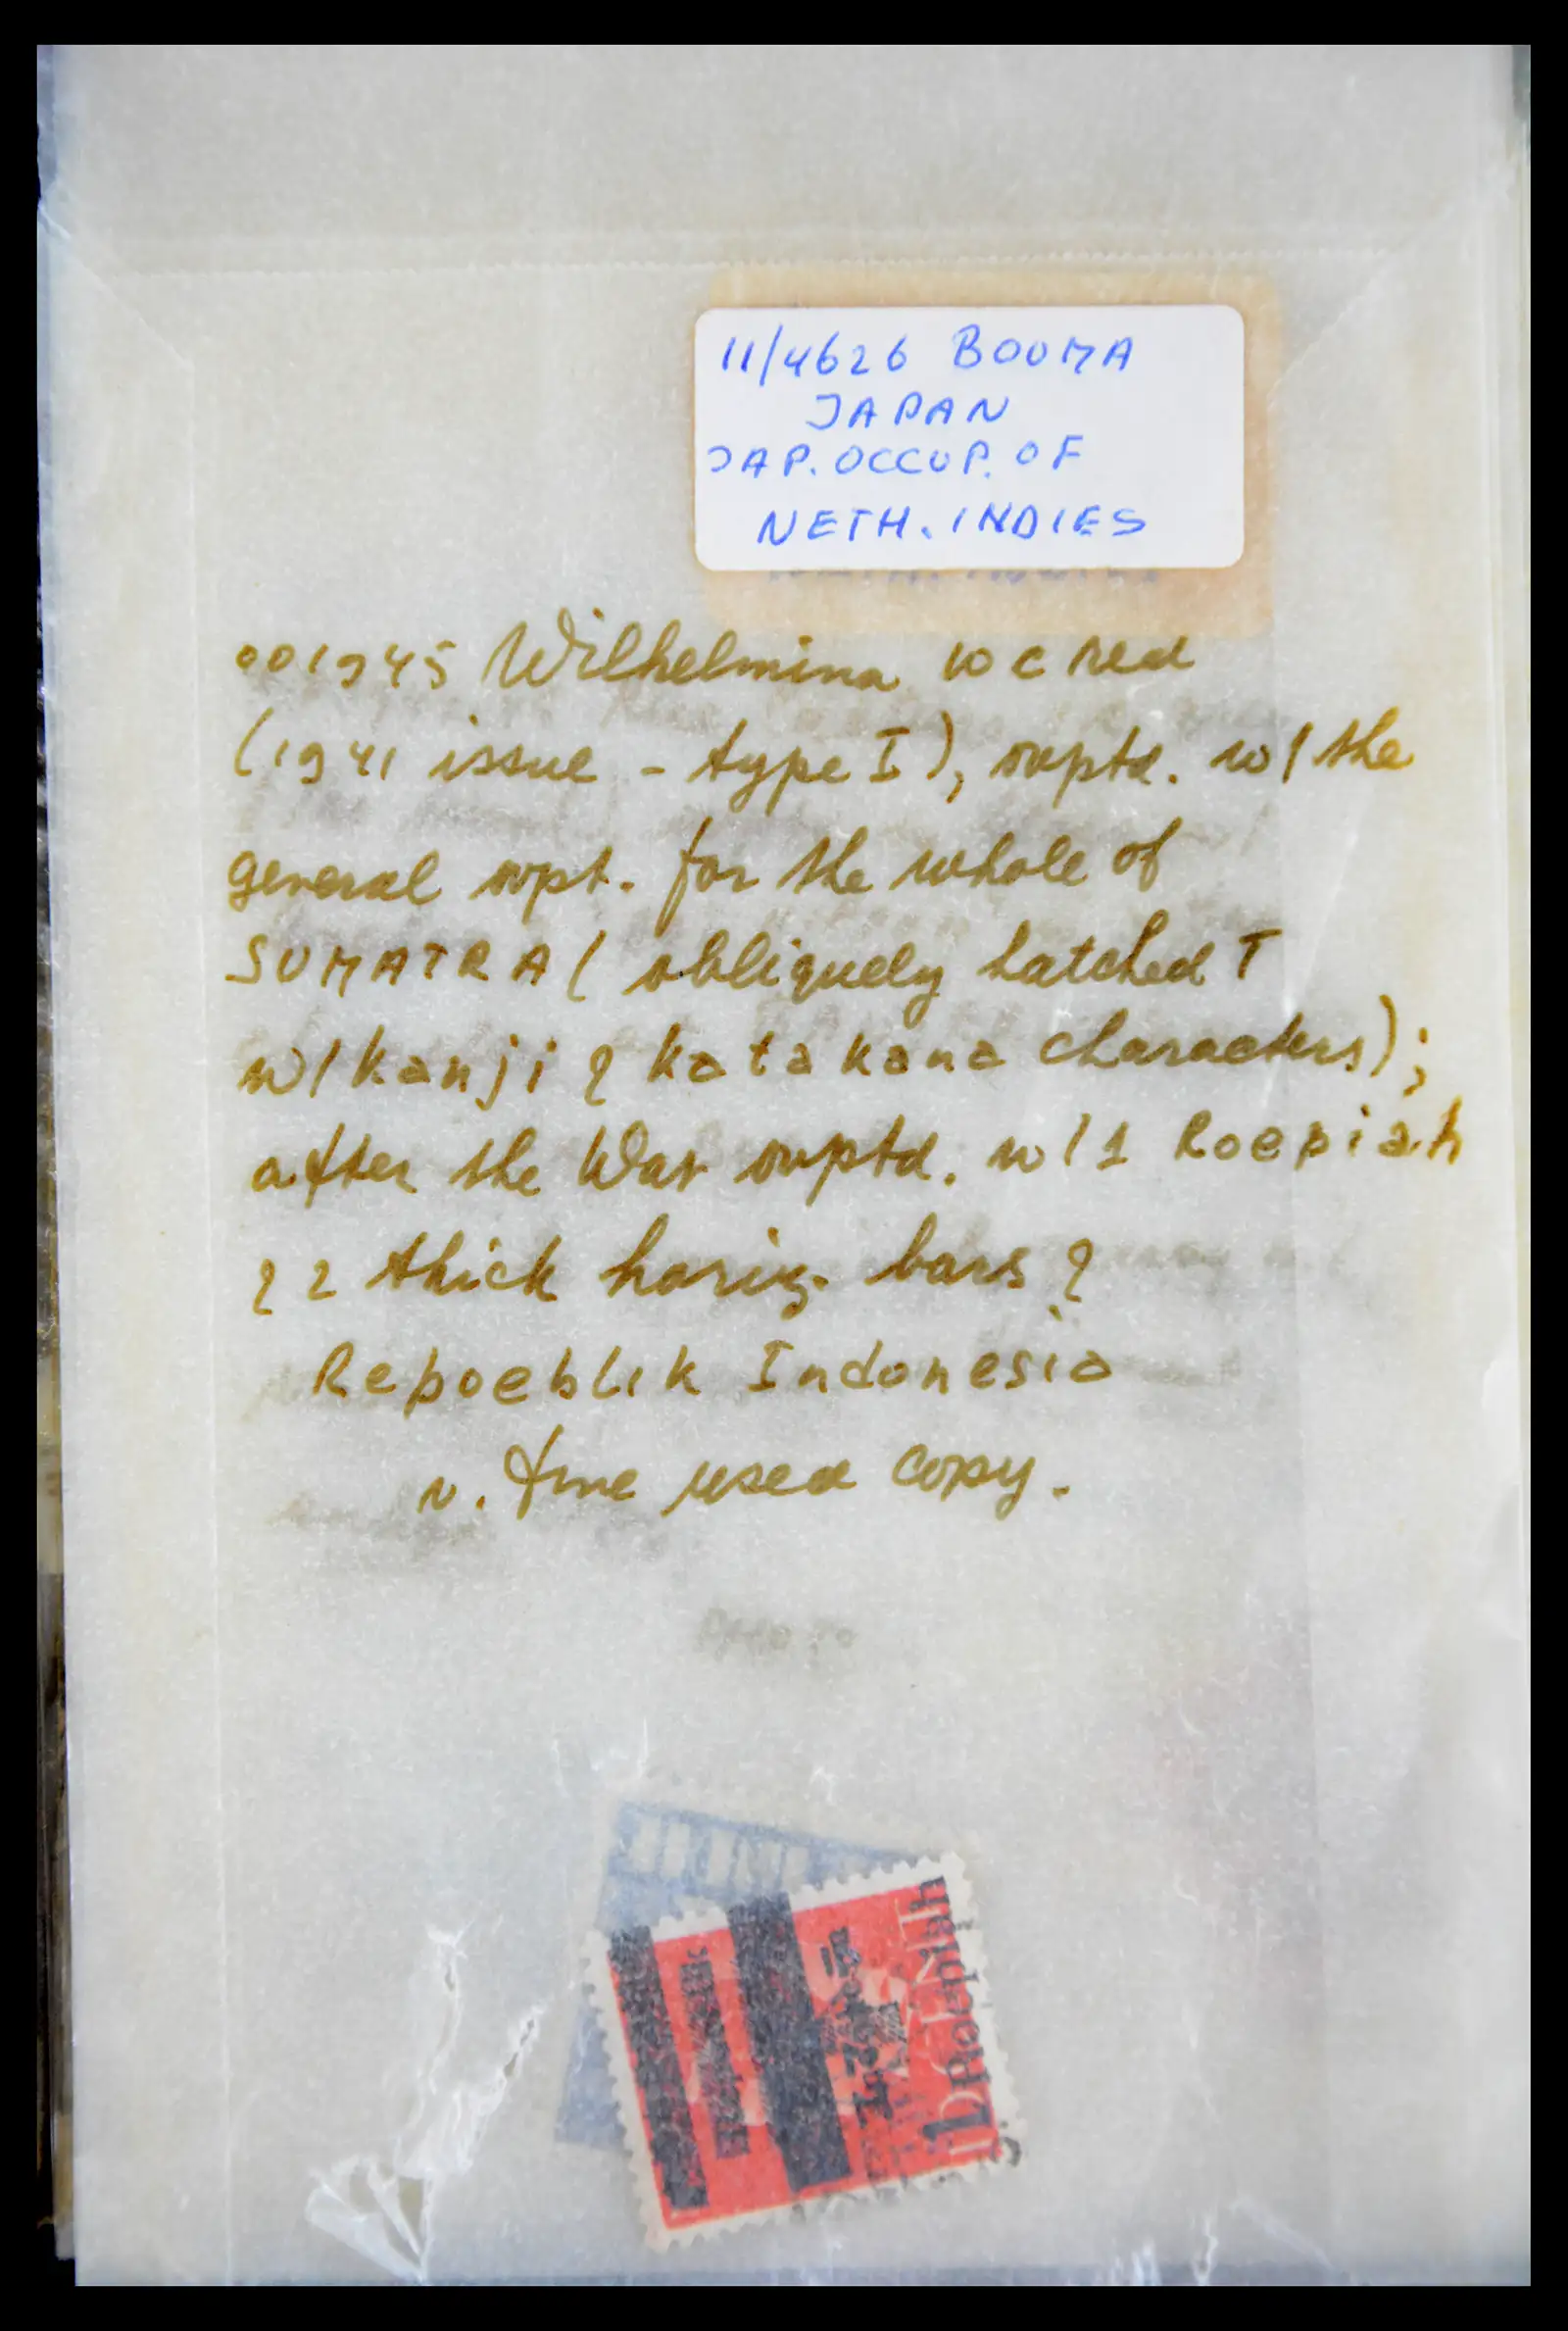 11/4626 BOUMA
JAPAN
JAP. OCCUP. OF
NETH. INDIES
001945 Wilhelmina 10 c red
(1941 issue - type I), ovptd. w/ the
general ovpt. for the whole of
SUMATRA ( obliquely hatched T
w/ kanji & katakana characters);
after the War ovptd. w/ 1 Roepiah
& 2 thick horiz. bars &
Repoeblik Indonesia
v. fine used copy.
1 Roepiah